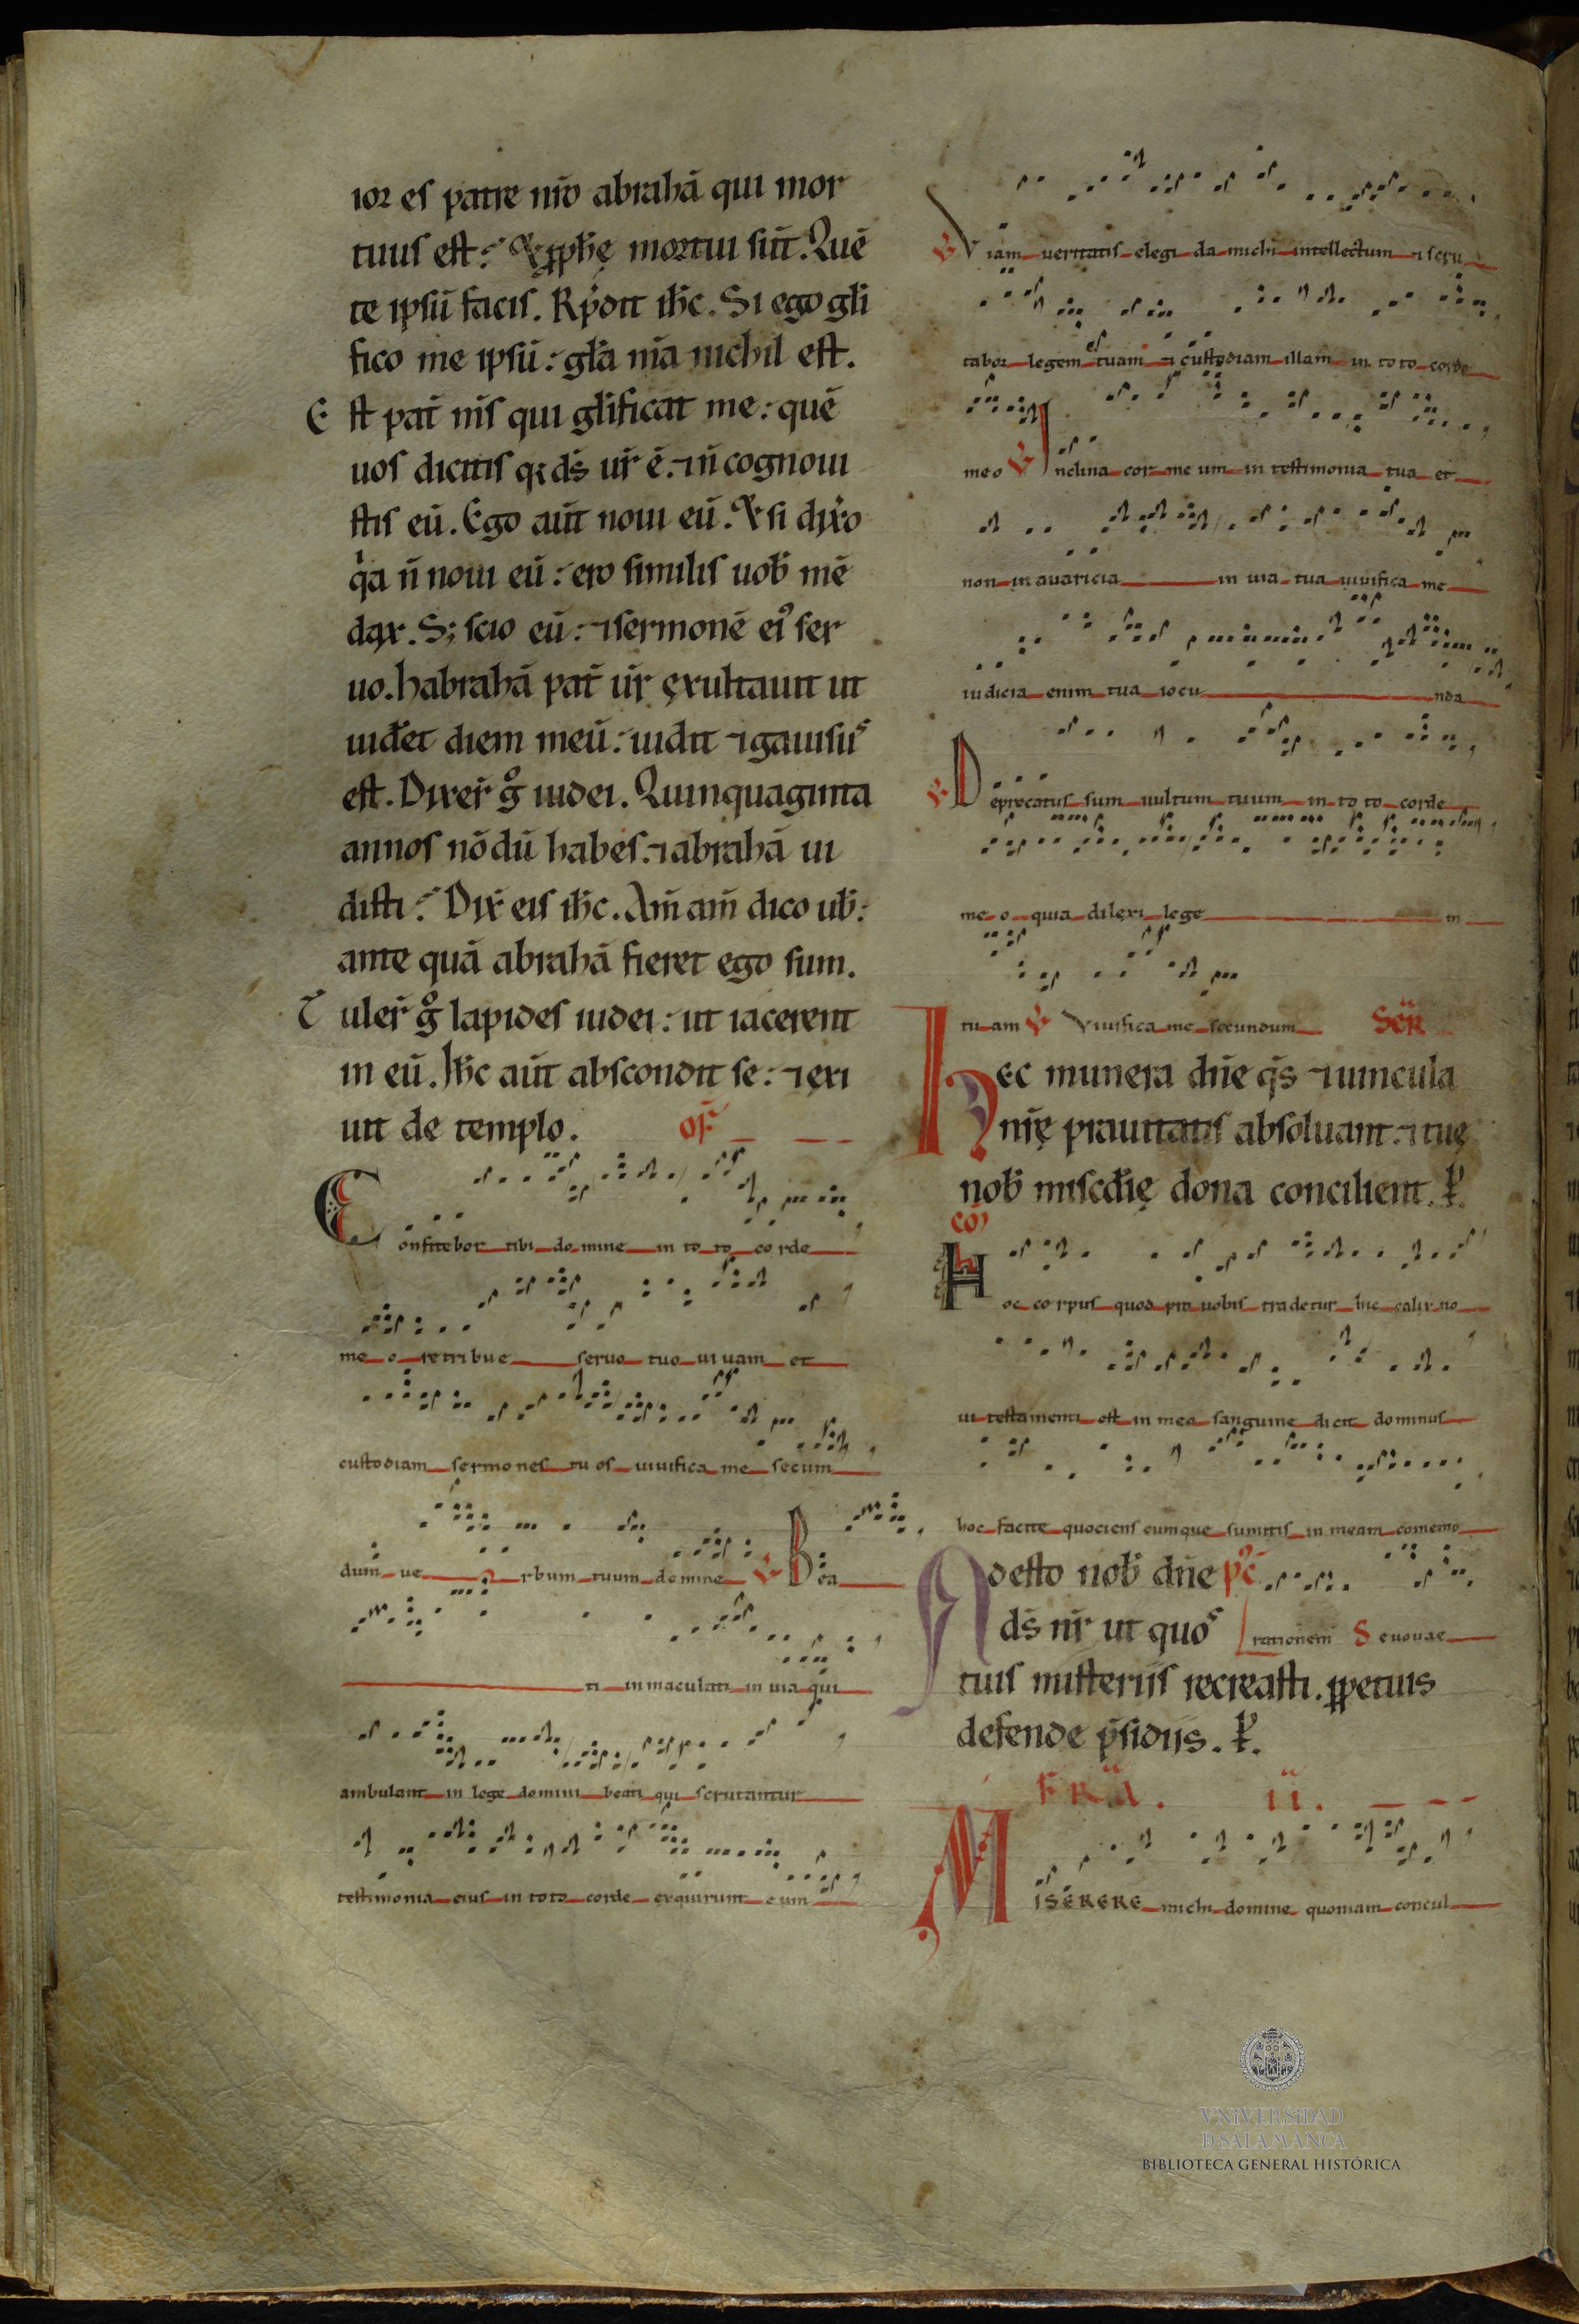 ior es patre nr̄o abrahā qui mor
tuus est: & ꝓphę mortui sūt. Quē
te ipsū facis. Rn̄dit ih̄c. Si ego gl̄i
fico me ipsū: gl̄a m̄a nichil est.
Est pat̄ m̄s qui gl̄ificat me: quē
uos dicitis q; ds̄ ur̄ ē. ⁊ n̄ cognoui
stis eū. Ego aūt noui eū. & si dix̄o
qa n̄ noui eū: ero similis uob̄ mē
dax. S; scio eū: ⁊ sermonē ei ser
uo. habrahā pat̄ ur̄ exultauit ut
uid̄et diem meū: uidit ⁊ gauisus
est. Dixer̄ g iudei. Quinquaginta
annos nōdū habes. ⁊ abrahā ui
disti: Dix̄ eis ih̄c. Am̄ am̄ dico ub̄:
ante quā abrahā fieret ego sum.
Tuler̄ g lapides iudei: ut iacerent
in eū. Ih̄c aūt abscondit se: ⁊ exi
uit de templo. of̄
Confitebor tibi domine in toto corde
meo retribue seruo tuo uiuam et
custodiam sermones tuos uiuifica me secum
dum uerbum tuum domine ℣ Bea
ti inmaculati in uia qui
ambulant in lege domini beati qui scrutantur
testimonia eius in toto corde exquirunt eum
℣ Viam ueritatis elegi da michi intellectum ⁊ scru
tabor legem tuam ⁊ custodiam illam in toto corde
meo ℣ Inclina cor meum in testimonia tua et
non in auaricia in uia tua uiuifica me
iudicia enim tua iocunda
℣ Deprecatus sum uultum tuum in toto corde
meo quia dilexi legem
tuam ℣ Viuifica me secundum SCR̄
Hec munera dn̄e qs̄ ⁊ uincula
nr̄ę prauitatis absoluant. ⁊ tuę
nob̄ miscd̄ię dona concilient. P̄.
cō
Hoc corpus quod pro uobis tradetur hic calix no
ui testamenti est in meo sanguine dicit dominus
hoc facite quociens cumque sumitis in meam comemo
Adesto nob̄ dn̄e pc̄
ds̄ nr̄ ut quos rationem S euouae
tuis misteriis recreasti. ꝑpetuis
defende p̄sidiis. P̄.
FR̄A. II.
MISERERE michi domine quoniam concul
VNiVERSiDAD
Đ SALAMANCA
BIBLIOTECA GENERAL HISTÓRICA